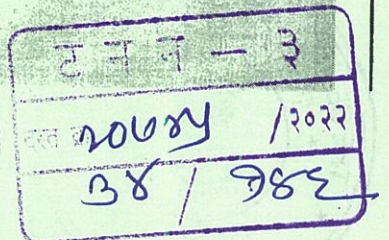 ट न न - ३
दस्त क्र २०७४५ /२०२२
३४ / १४६